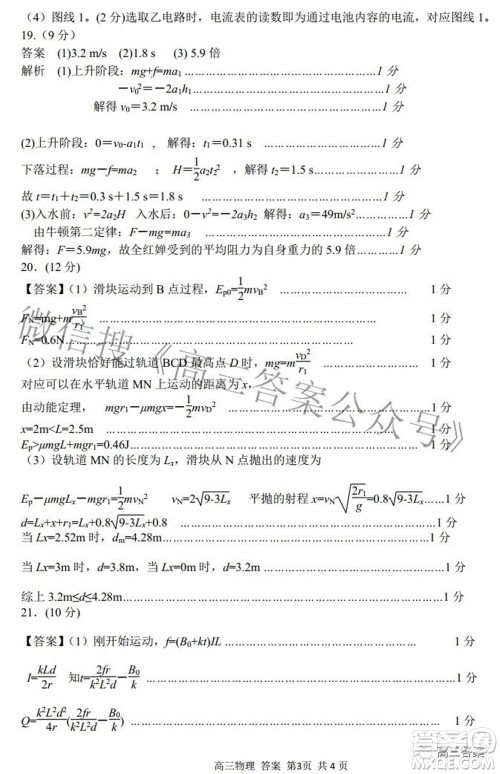 （4）图线 1。(2 分)选取乙电路时，电流表的读数即为通过电池内容的电流，对应图线 1。
19.（9 分）
答案 (1)3.2 m/s (2)1.8 s (3) 5.9 倍
解析 (1)上升阶段：mg+f=ma₁ ………………………………………1 分
−v₀²＝−2a₁h₁………………………………………1 分
解得 v₀＝3.2 m/s ………………………………………1 分
(2)上升阶段：0＝v₀-a₁t₁ ，解得：t₁＝0.31 s ………………………1 分
下落过程：mg－f=ma₂ ；H＝1/2a₂t₂² ，解得 t₂＝1.5 s………………………1 分
故 t＝t₁＋t₂＝0.3 s＋1.5 s＝1.8 s ………………………1 分
(3)入水前：v²=2a₂H 入水后：0－v²=－2a₃h₂ 解得：a₃=49m/s²……………1 分
由牛顿第二定律：F－mg=ma₃ ………………………1 分
解得：F＝5.9mg，故全红婵受到的平均阻力为自身重力的 5.9 倍……………1 分
20．(12 分)
【答案】（1）滑块运动到 B 点过程，Eₚ₀=1/2mv_B² ………………………1 分
F_N=mg+m v_B²/r₁ ………………………1 分
F_N=0.6N………………………1 分
（2）设滑块恰好能过轨道 BCD 最高点 D 时，mg=m v_D²/r₁ ………………………1 分
对应可以在水平轨道 MN 上运动的距离为 x，
由动能定理， mgr₁－μmgx=－1/2mv_D² ………………………1 分
x=2m<L=2.5m ………………………1 分
Eₚ>μmgL+mgr₁=0.46J………………………1 分
（3）设轨道 MN 的长度为 Lₓ，滑块从 N 点抛出的速度为
Eₚ－μmgLₓ－mgr₁=1/2mv_N² v_N=2√(9-3Lₓ) 平抛的射程 x=v_N√(2r₁/g)=0.8√(9-3Lₓ)……1 分
d=Lₓ+x+r₁=Lₓ+0.8√(9-3Lₓ)+0.8 ………………………1 分
当 Lₓ=2.52m 时，dₘ=4.28m………………………1 分
当 Lₓ=3m 时，d=3.8m，当 Lₓ=0m 时，d=3.2m………………………1 分
综上 3.2m≤d≤4.28m………………………1 分
21．(10 分)
【答案】（1）刚开始运动，f=(B₀+kt)IL ………………………1 分
I=kLd/2r 知t=2fr/k²L²d－B₀/k ………………………1 分
Q=k²L²d²/4r(2fr/k²L²d－B₀/k) ………………………1 分
高三物理 答案 第3页 共 4 页
微信搜《高三答案公众号》
高三答案